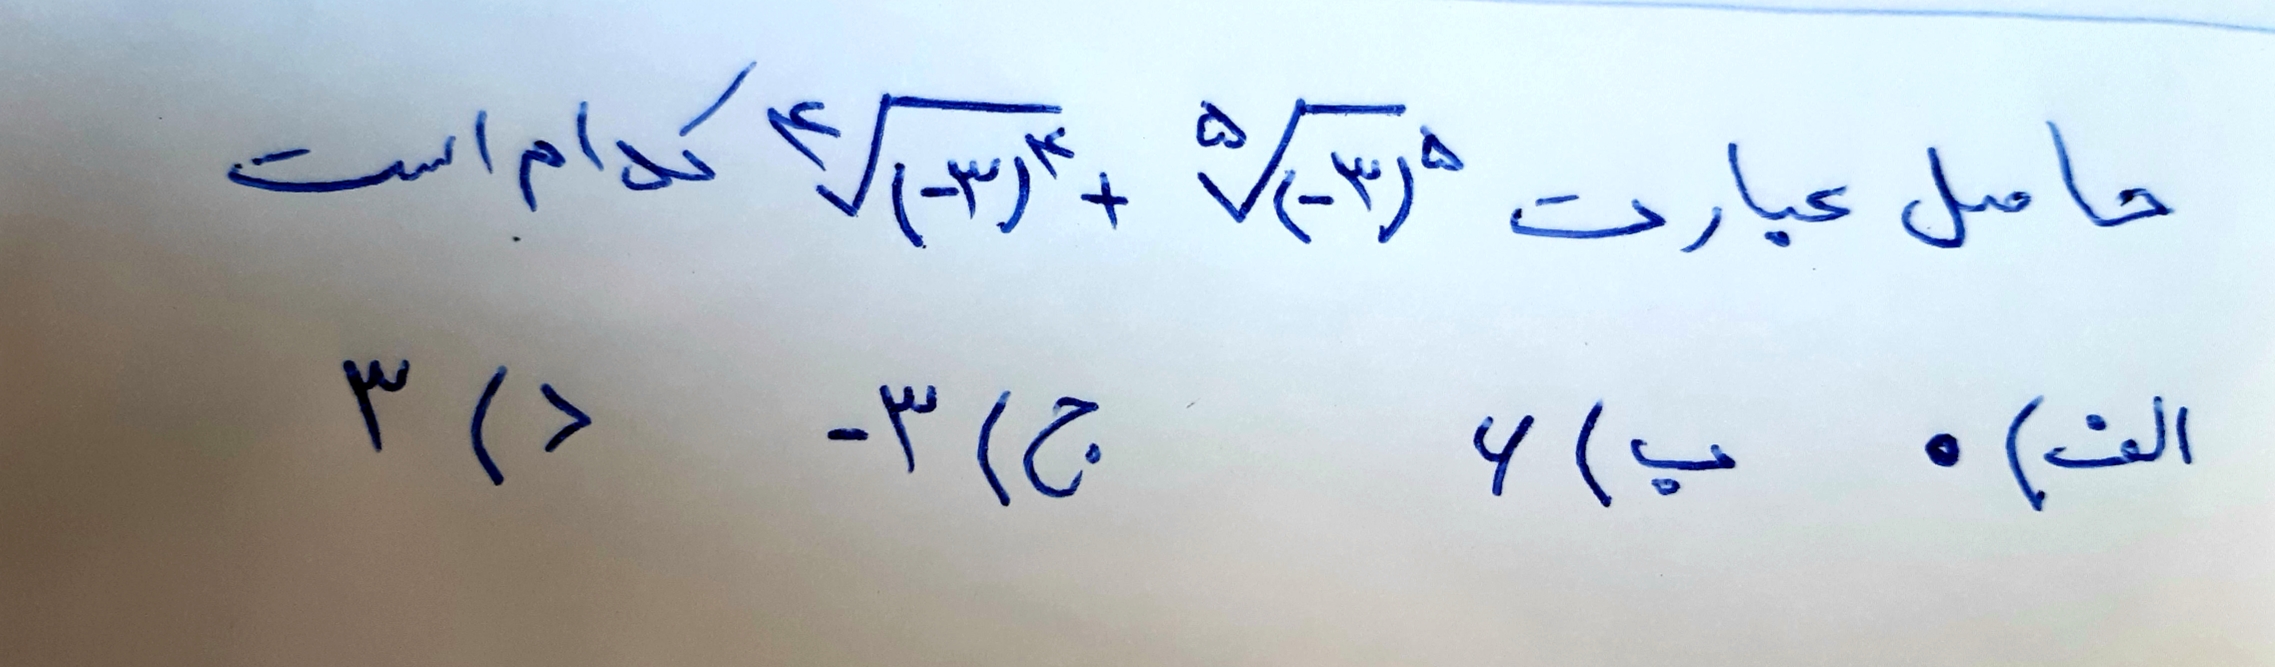 حاصل عبارت ⁴√(-۳)⁴ + ⁵√(-۳)⁵ کدام است
الف) ۰ ب) ۶ ج) -۳ د) ۳